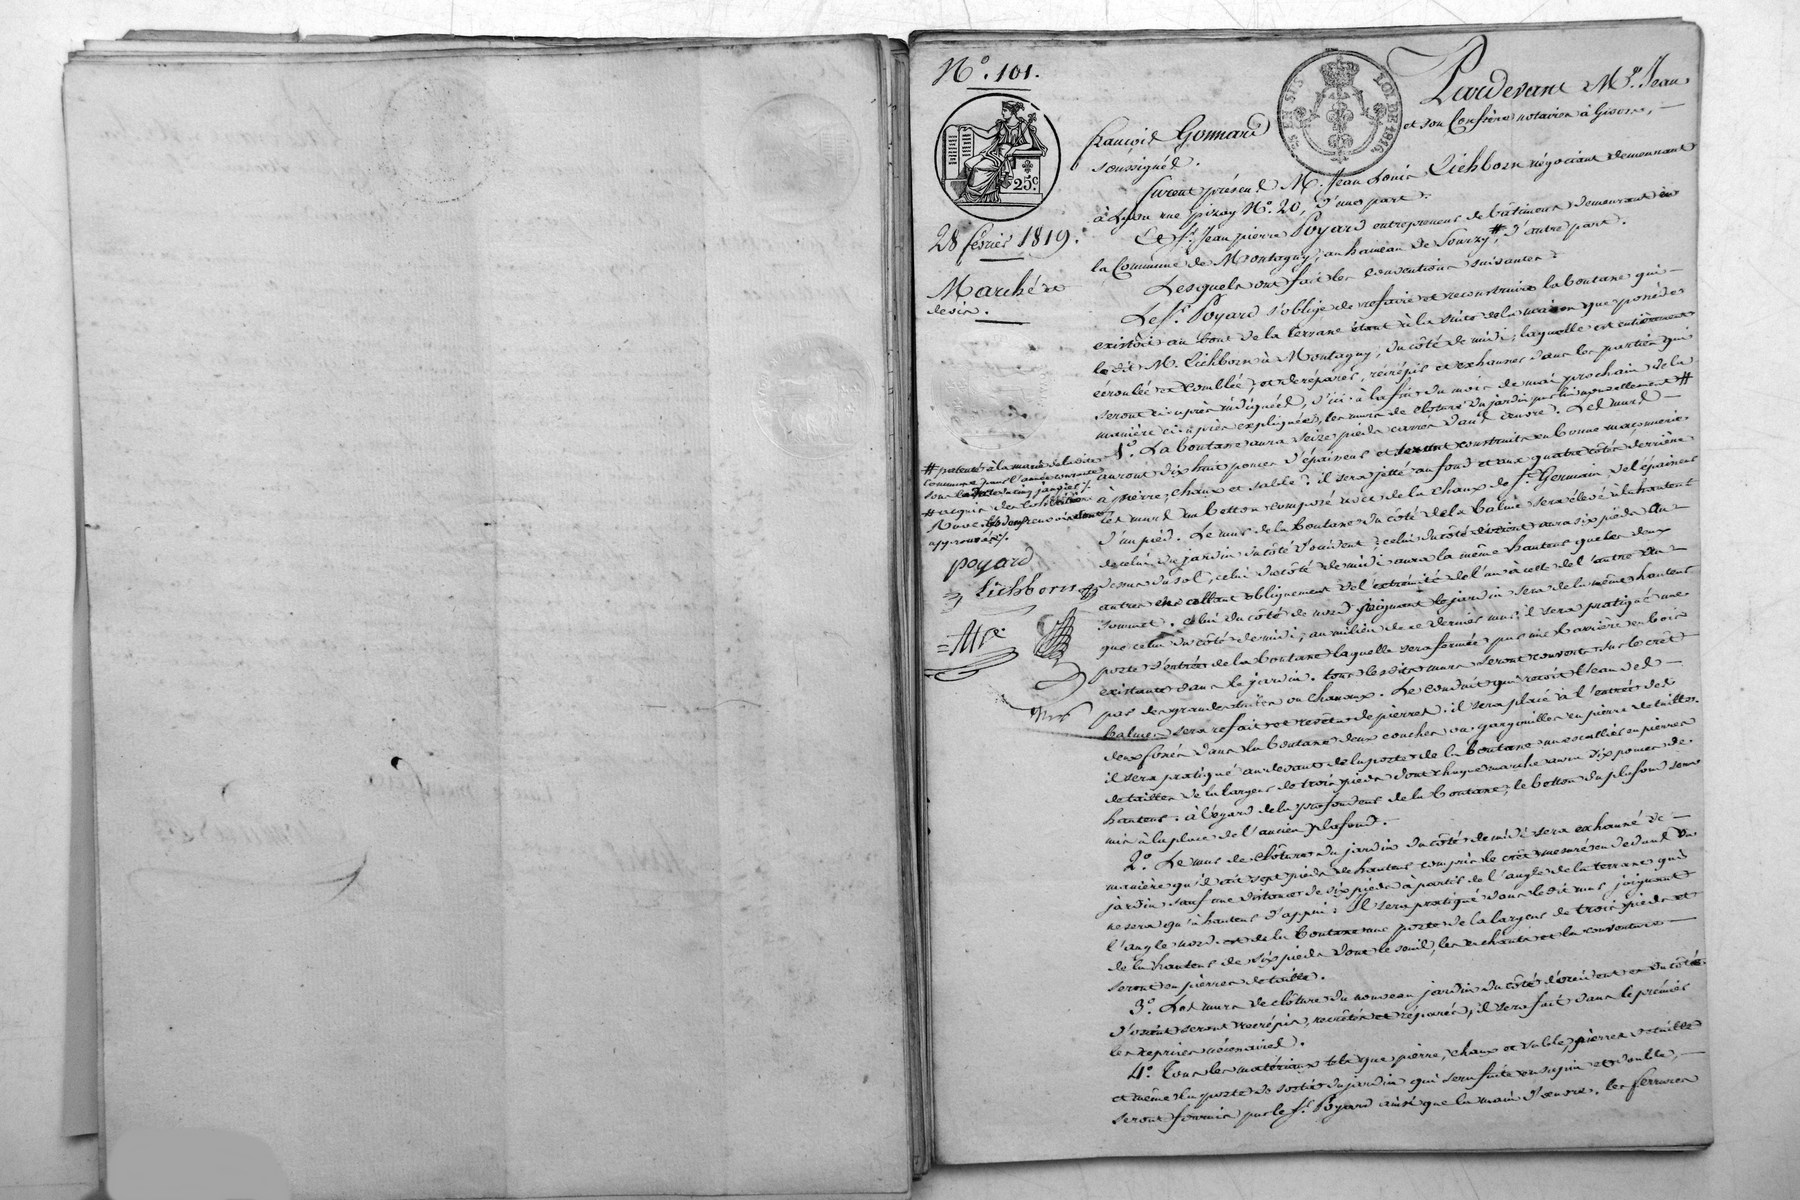 N.º 101.
25.c
28 février 1819.
Marché et
devis.
EN SUS
LOI DE 1816.
Pardevant M.e Jean
françois Gonnard et son Confrère notaires à Givors,
soussignés.
furent présens M. Jean Louis Eichborn négociant demeurant
à Lyon rue pizay N.º 20, d'une part.
Et S.r Jean pierre Poyard entrepreneur de bâtimens demeurant en
la Commune de Montagny, au hameau de Sourzy #, d'autre part.
Lesquels ont fait les conventions suivantes :
Le S.r Poyard s'oblige de refaire et reconstruire la boutasse qui
existoit au bout de la terrasse étant à la suite de la maison que possède
le dit M. Eichborn à Montagny, du côté de midi, laquelle est entièrement
écroulée et comblée, et de réparer, récrépir et exhausser dans les parties qui
seront ci-après indiquées, d'ici à la fin du mois de mai prochain de la
manière ci-après expliquée, les murs de clôture du jardin par lui nouvellement #
1.º La boutasse aura seize pieds carrés dans œuvre. Les murs
auront dix huit pouces d'épaisseur et seront construits en bonne maçonnerie
à pierre, chaux et sable : il sera jetté au fond et aux quatre côtés derrière
les murs un betton composé avec de la chaux de S.t Germain de l'épaisseur
d'un pied. Le mur de la boutasse du côté de la balme sera élevé à la hauteur
de celui du jardin du côté d'occident : celui du côté d'orient aura six pieds au
dessus du sol, celui du côté de midi aura la même hauteur que les deux
autres en allant obliquement de l'extrémité de l'un à celle de l'autre au
sommet. Celui du côté de nord joignant le jardin sera de la même hauteur
que celui du côté de midi ; au milieu de ce dernier mur il sera pratiqué une
porte d'entrée de la boutasse laquelle sera formée par une barrière en bois
existante dans le jardin. tous lesdits murs seront couverts sur le crêt
par des grandes tuiles ou chanaux. Le conduit qui reçoit l'eau des
balmes sera refait et revêtu de pierres. il sera placé à l'entrée des
deux dans la boutasse deux couches ou gargouilles en pierre de tailles.
il sera pratiqué au devant de la porte de la boutasse un escalier en pierres
de tailles de la largeur de trois pieds dont chaque marche aura six pouces de
hauteur : à l'égard de la profondeur de la boutasse, le betton du plafond sera
mis à la place de l'ancien plafond.
2.º Le mur de clôture du jardin du côté de midi sera exhaussé de
manière qu'il ait sept pieds de hauteur compris le crêt mesuré en dedans du
jardin sauf une distance de six pieds à partir de l'angle de la terrasse qui
ne sera qu'à hauteur d'appui : Il sera pratiqué dans le dit mur joignant
l'angle nord est de la boutasse une porte de la largeur de trois pieds et
de la hauteur de six pieds dont le seuil, les enchants et la couverture
seront en pierres de taille.
3.º Les murs de clôture du nouveau jardin du côté d'occident et du côté
d'orient seront recrépis, recrêtés et réparés, il sera fait dans le premier
les reprises nécessaires.
4.º Tous les matériaux tels que pierre, chaux et sable, pierres de taille
et même la porte de sortie du jardin qui sera faite en sapin et double,
seront fournis par le S.r Poyard ainsi que la main d'œuvre. les ferrures
# patenté à la mairie de la dite
Commune pour l'année courante
sous la date du cinq janvier /.
# acquis des
approuvés /.
poyard
Eichborn